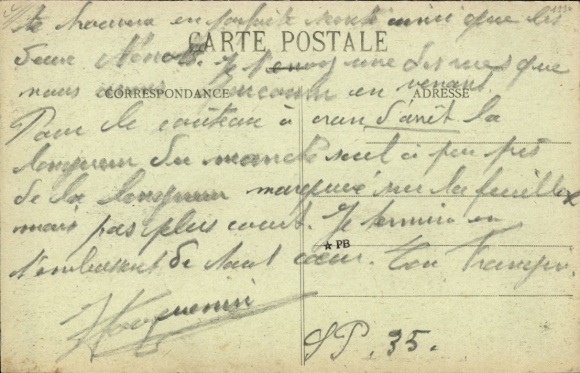 te trouvera en parfaite santé ainsi que les
deux
CARTE POSTALE
Je t'envoi une des rues que
nous avons parcouru en venant.
CORRESPONDANCE
ADRESSE
Pour le couteau à cran d'arrêt la
longueur du manche seul à peu près
de la longueur marquée sur la feuille
mais pas plus court. Je termine en
t'embrassant de tout cœur. Ton François.
★ PB
SP. 35.